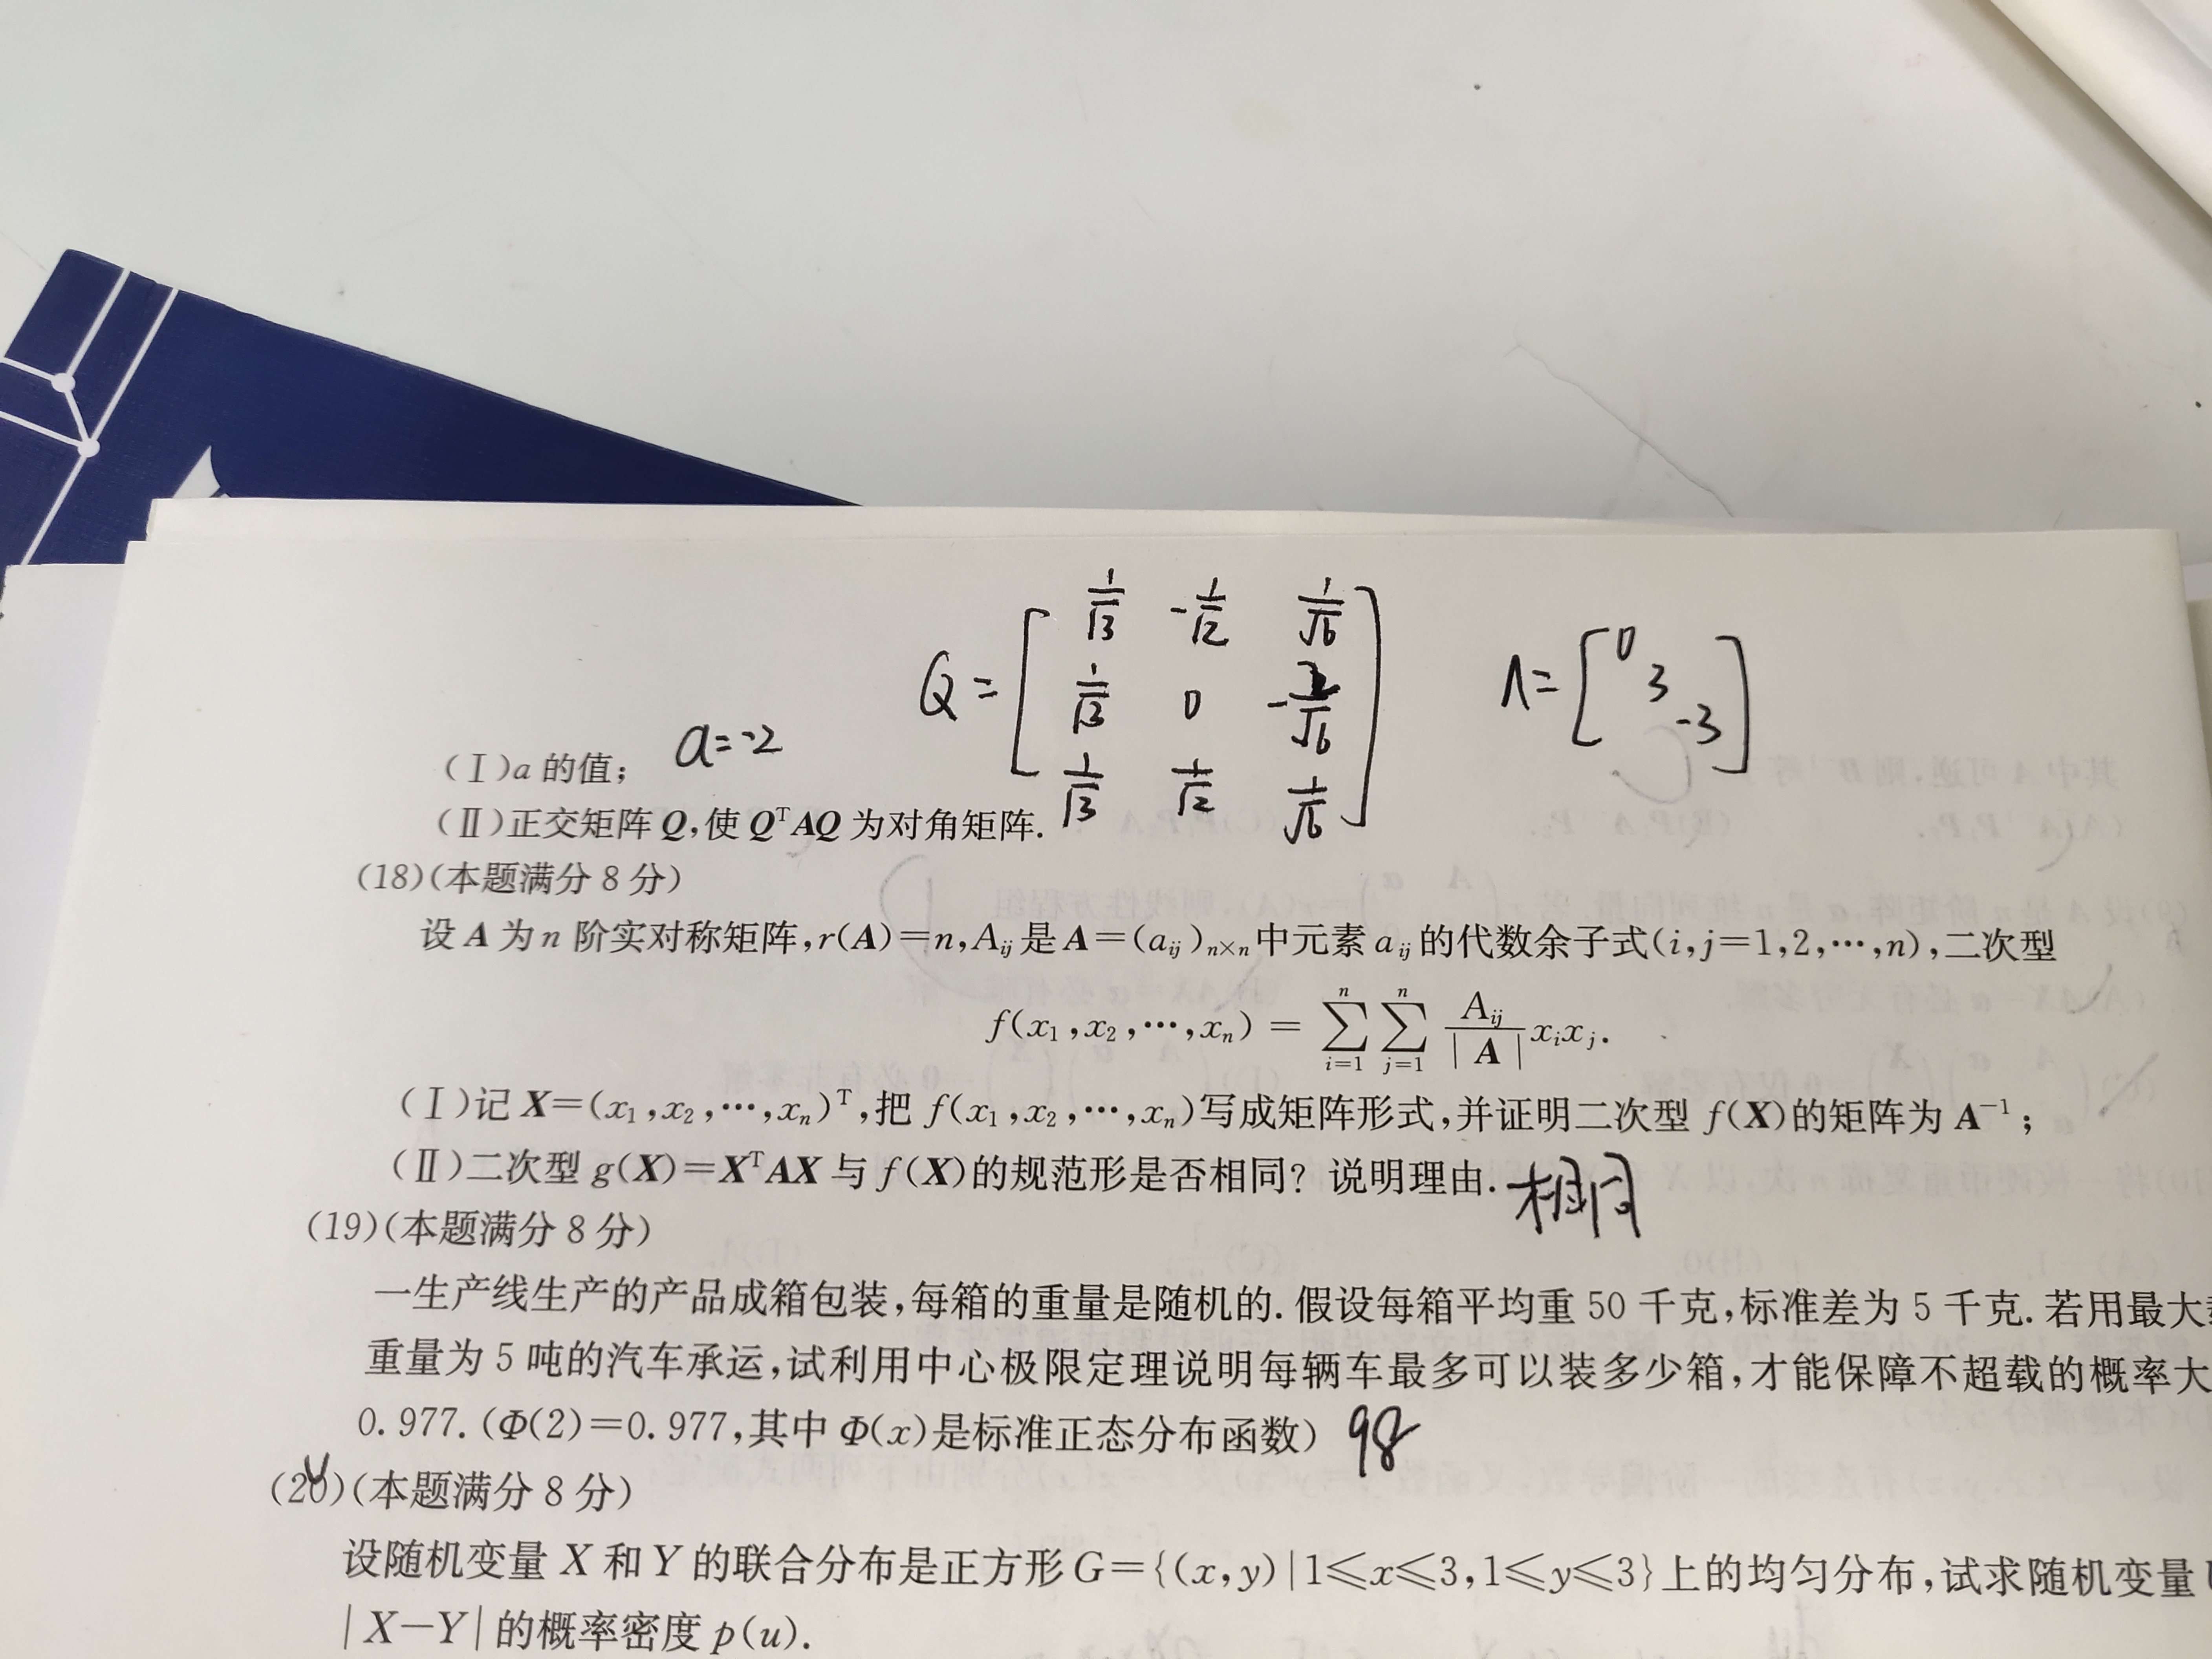 Q = [ 1/√3 -1/√2 1/√6
1/√3 0 -2/√6
1/√3 1/√2 1/√6 ]
Λ = [ 0 3 -3 ]
(Ⅰ)a 的值; a=-2
(Ⅱ)正交矩阵 Q,使 QᵀAQ 为对角矩阵.
(18)(本题满分 8 分)
设 A 为 n 阶实对称矩阵,r(A)=n,Aᵢⱼ 是 A=(aᵢⱼ)ₙₓₙ 中元素 aᵢⱼ 的代数余子式(i,j=1,2,…,n),二次型
f(x₁,x₂,…,xₙ) = ∑ᵢ₌₁ⁿ ∑ⱼ₌₁ⁿ Aᵢⱼ/|A| xᵢxⱼ.
(Ⅰ)记 X=(x₁,x₂,…,xₙ)ᵀ,把 f(x₁,x₂,…,xₙ)写成矩阵形式,并证明二次型 f(X)的矩阵为 A⁻¹;
(Ⅱ)二次型 g(X)=XᵀAX 与 f(X)的规范形是否相同? 说明理由. 相同
(19)(本题满分 8 分)
一生产线生产的产品成箱包装,每箱的重量是随机的. 假设每箱平均重 50 千克,标准差为 5 千克. 若用最大
重量为 5 吨的汽车承运,试利用中心极限定理说明每辆车最多可以装多少箱,才能保障不超载的概率大
0.977. (Φ(2)=0.977,其中 Φ(x)是标准正态分布函数) 98
(20)(本题满分 8 分)
设随机变量 X 和 Y 的联合分布是正方形 G={(x,y)|1≤x≤3,1≤y≤3}上的均匀分布,试求随机变量
|X−Y| 的概率密度 p(u).